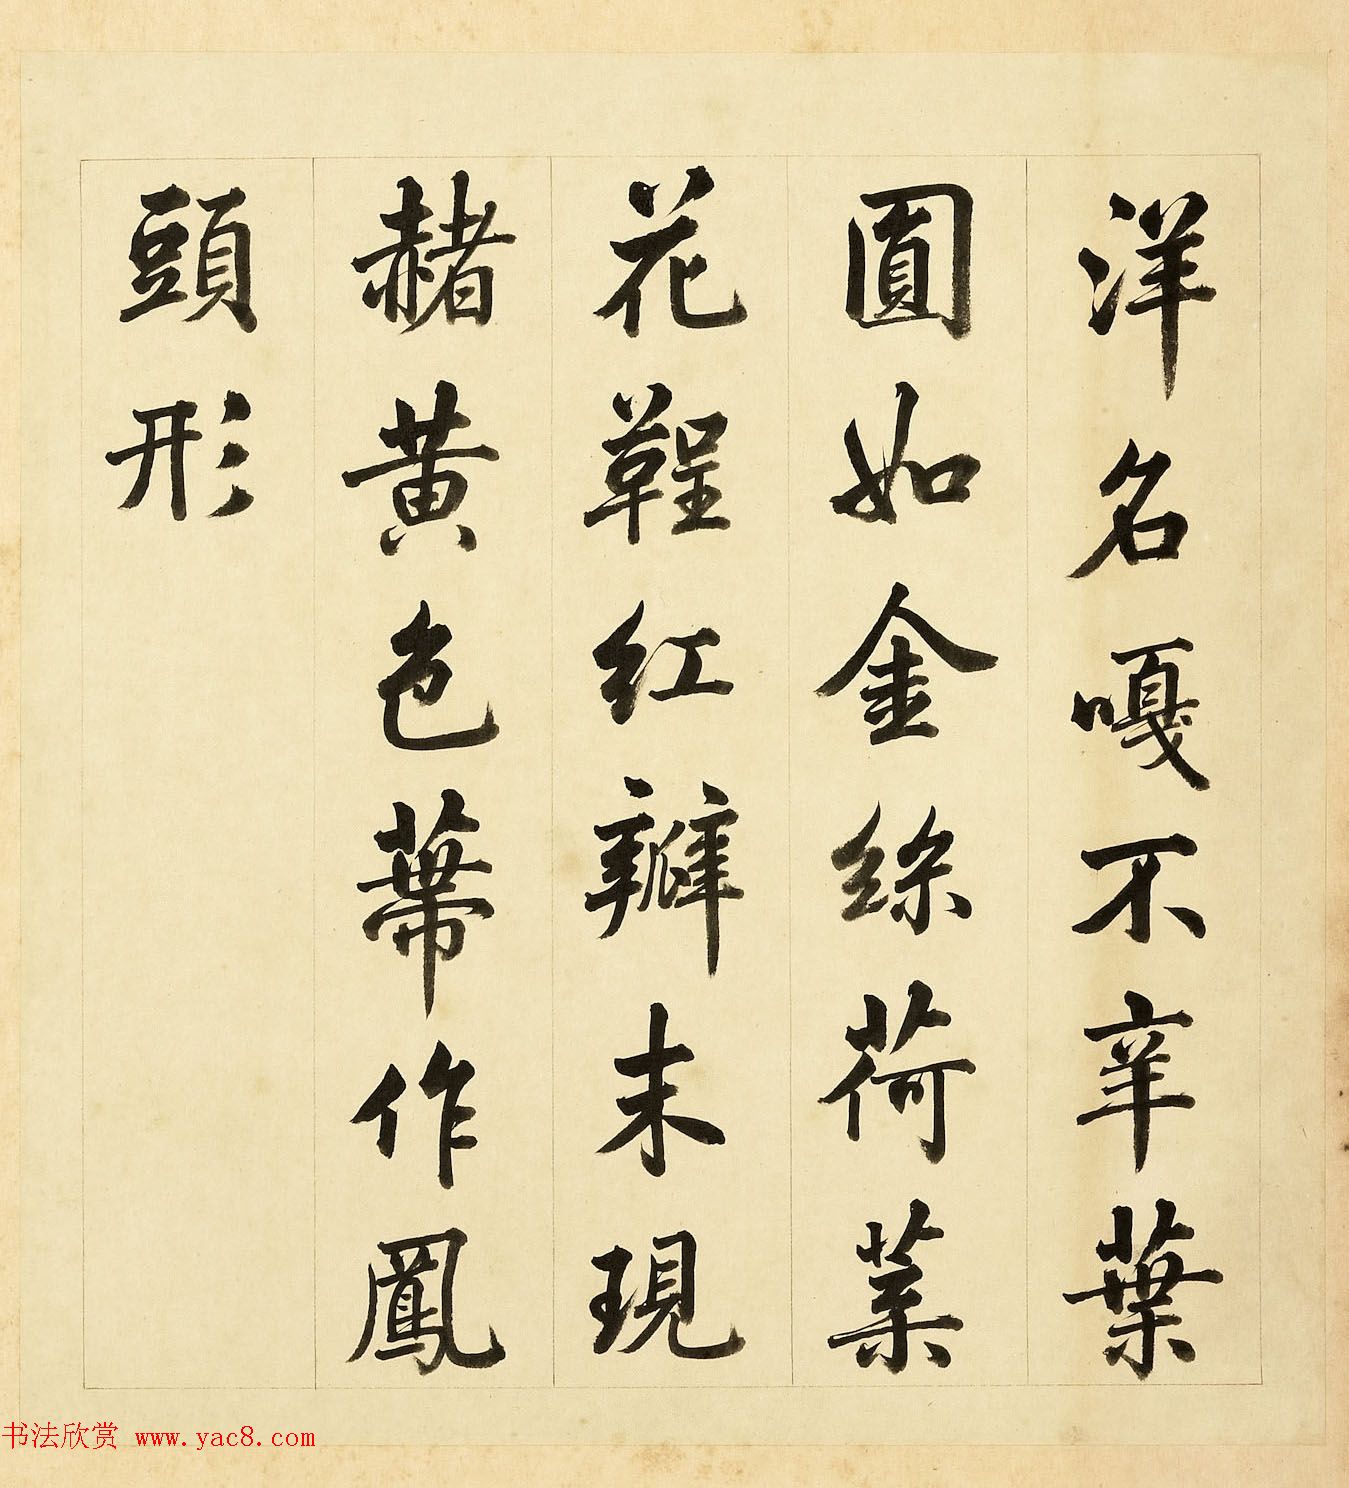 洋名嘎不辛葉
圓如金絲荷葉
花鞓红瓣末現
赭黄色蒂作鳳
頭形
书法欣赏 www.yac8.com